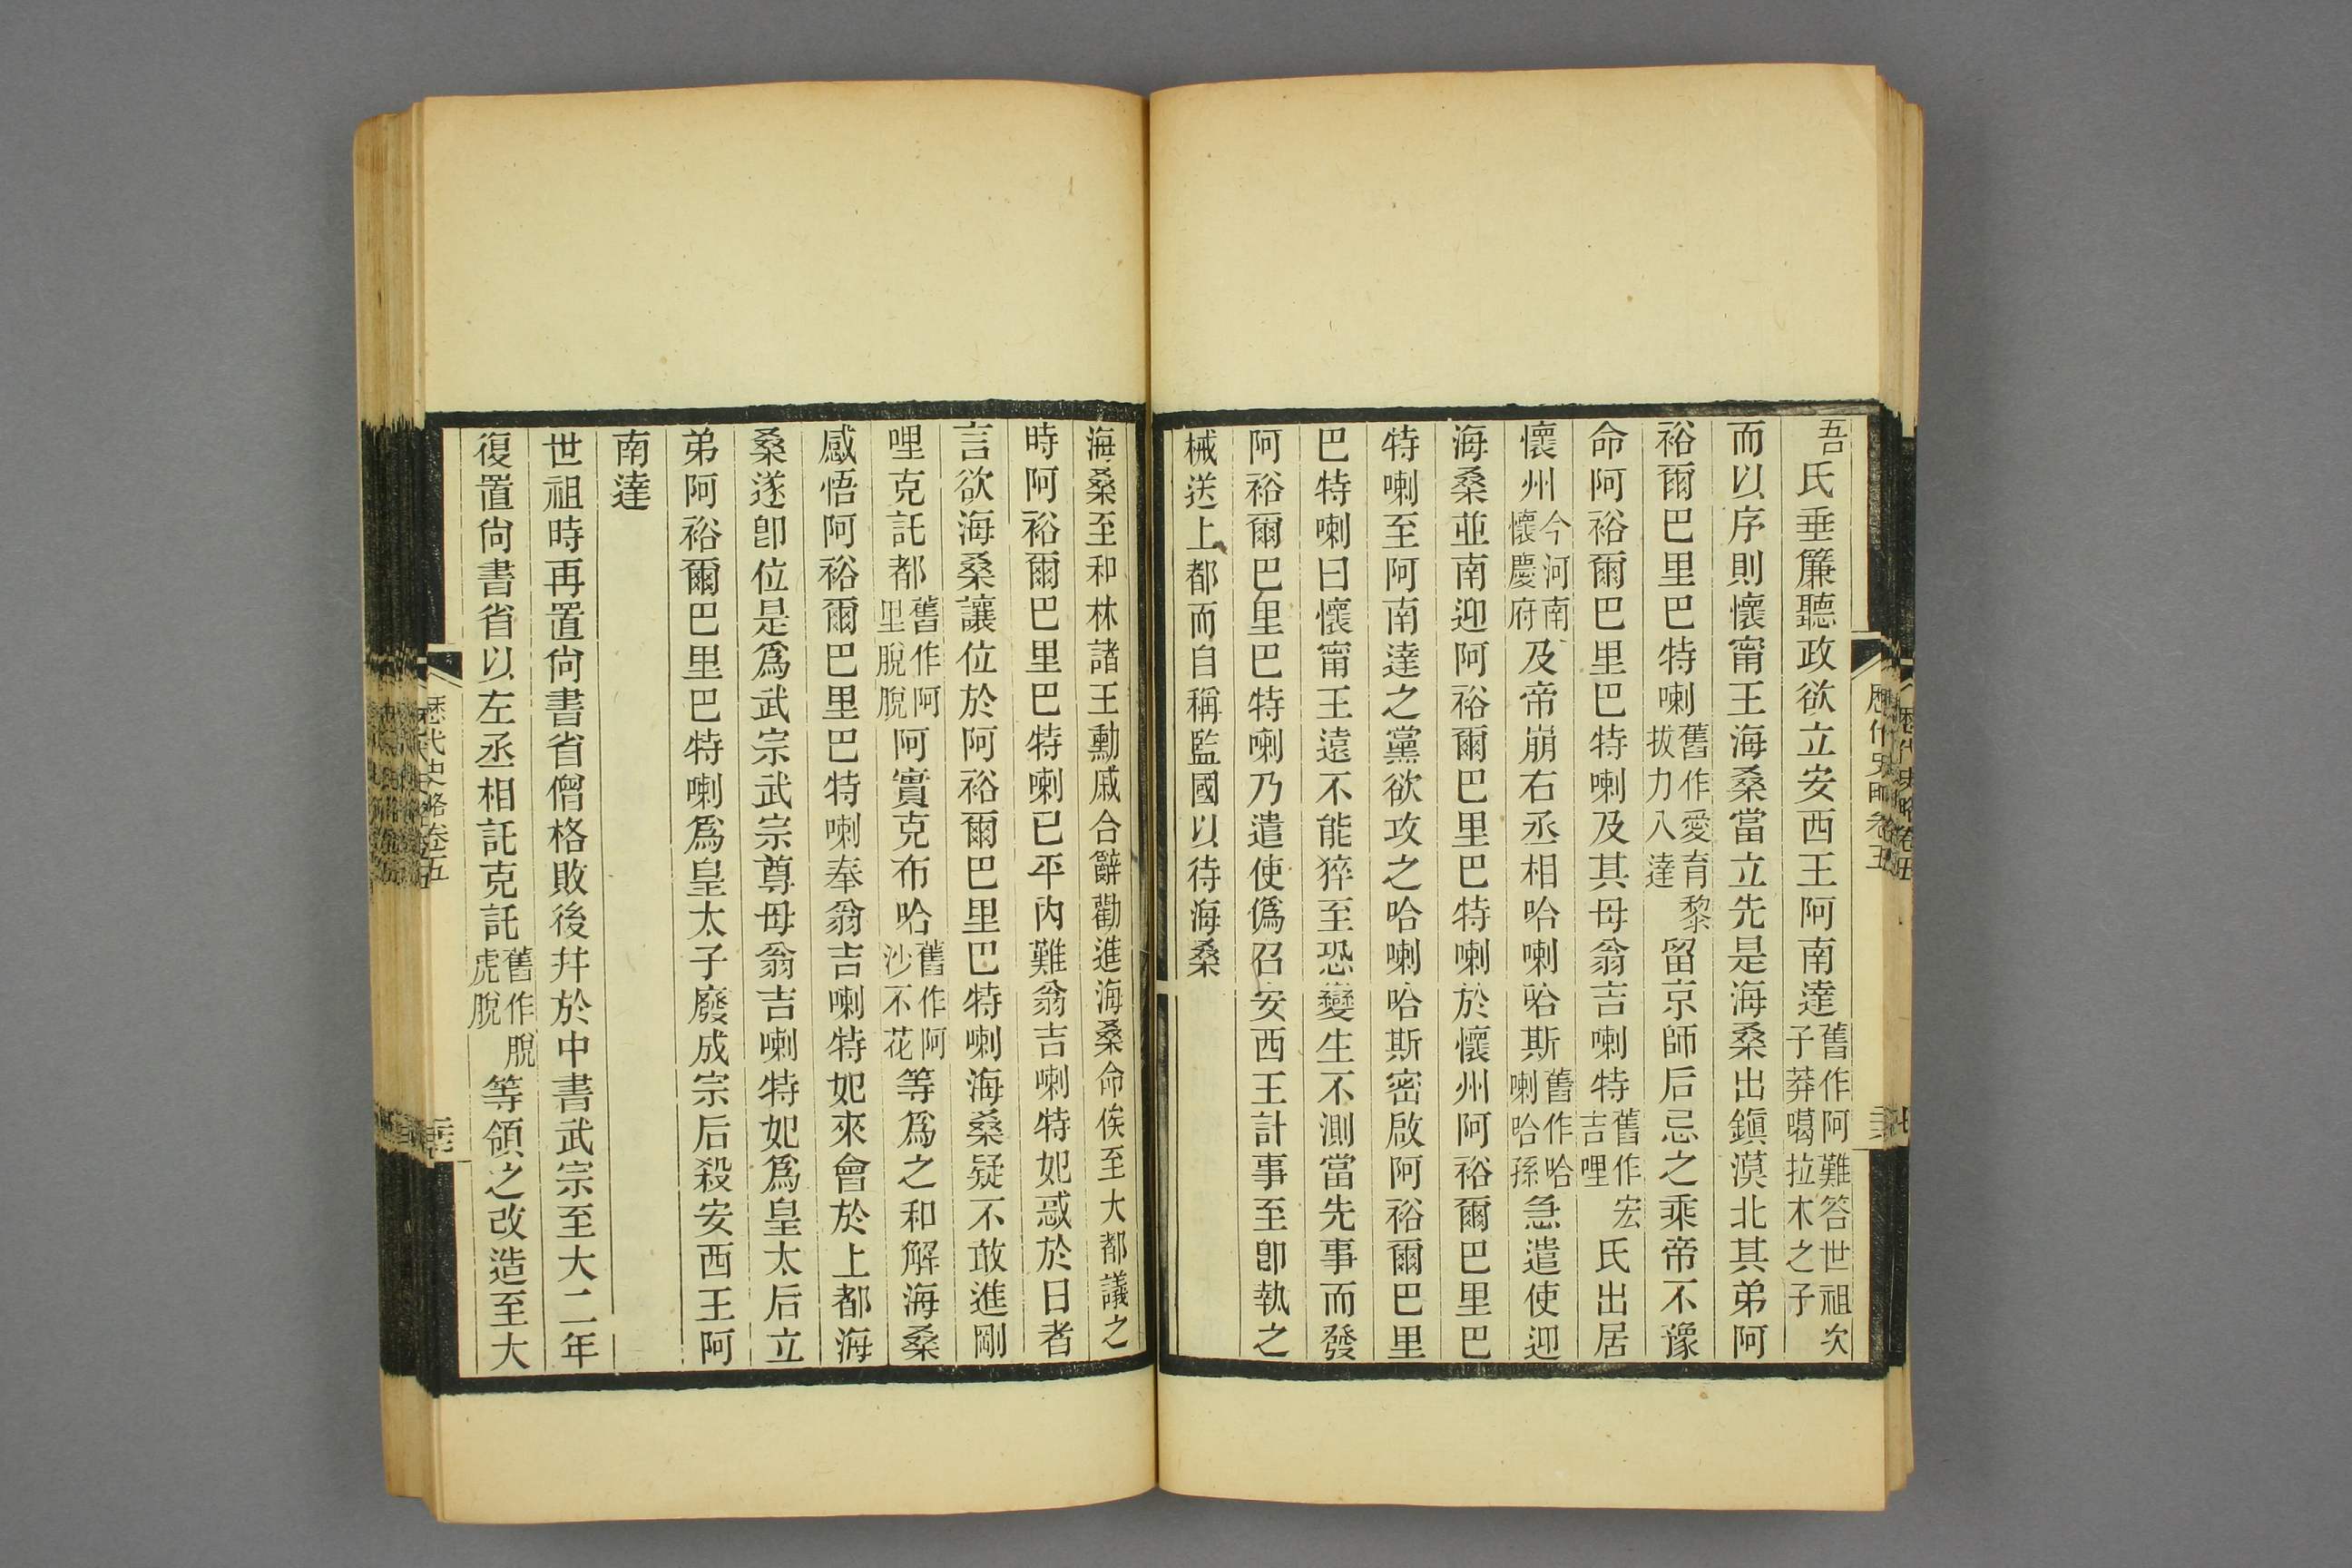 吾氏垂簾聽政欲立安西王阿南達舊作阿難答世祖次子莽噶拉木之子
而以序則懷甯王海桑當立先是海桑出鎭漠北其弟阿
裕爾巴里巴特喇舊作愛育黎拔力八達留京師后忌之乘帝不豫
命阿裕爾巴里巴特喇及其母翁吉喇特舊作宏吉哩氏出居
懷州今河南懷慶府及帝崩右丞相哈喇哈斯舊作哈喇哈孫急遣使迎
海桑並南迎阿裕爾巴里巴特喇於懷州阿裕爾巴里巴
特喇至阿南達之黨欲攻之哈喇哈斯密啟阿裕爾巴里
巴特喇曰懷甯王遠不能猝至恐變生不測當先事而發
阿裕爾巴里巴特喇乃遣使僞召安西王計事至卽執之
械送上都而自稱監國以待海桑
海桑至和林諸王勳戚合辭勸進海桑命俟至大都議之
時阿裕爾巴里巴特喇已平內難翁吉喇特妃惑於日者
言欲海桑讓位於阿裕爾巴里巴特喇海桑疑不敢進剛
哩克託都舊作阿里脫脫阿實克布哈舊作阿沙不花等爲之和解海桑
感悟阿裕爾巴里巴特喇奉翁吉喇特妃來會於上都海
桑遂卽位是爲武宗武宗尊母翁吉喇特妃爲皇太后立
弟阿裕爾巴里巴特喇爲皇太子廢成宗后殺安西王阿
南達
世祖時再置尙書省僧格敗後幷於中書武宗至大二年
復置尙書省以左丞相託克託舊作脫虎脫等領之改造至大
歷代史略卷五